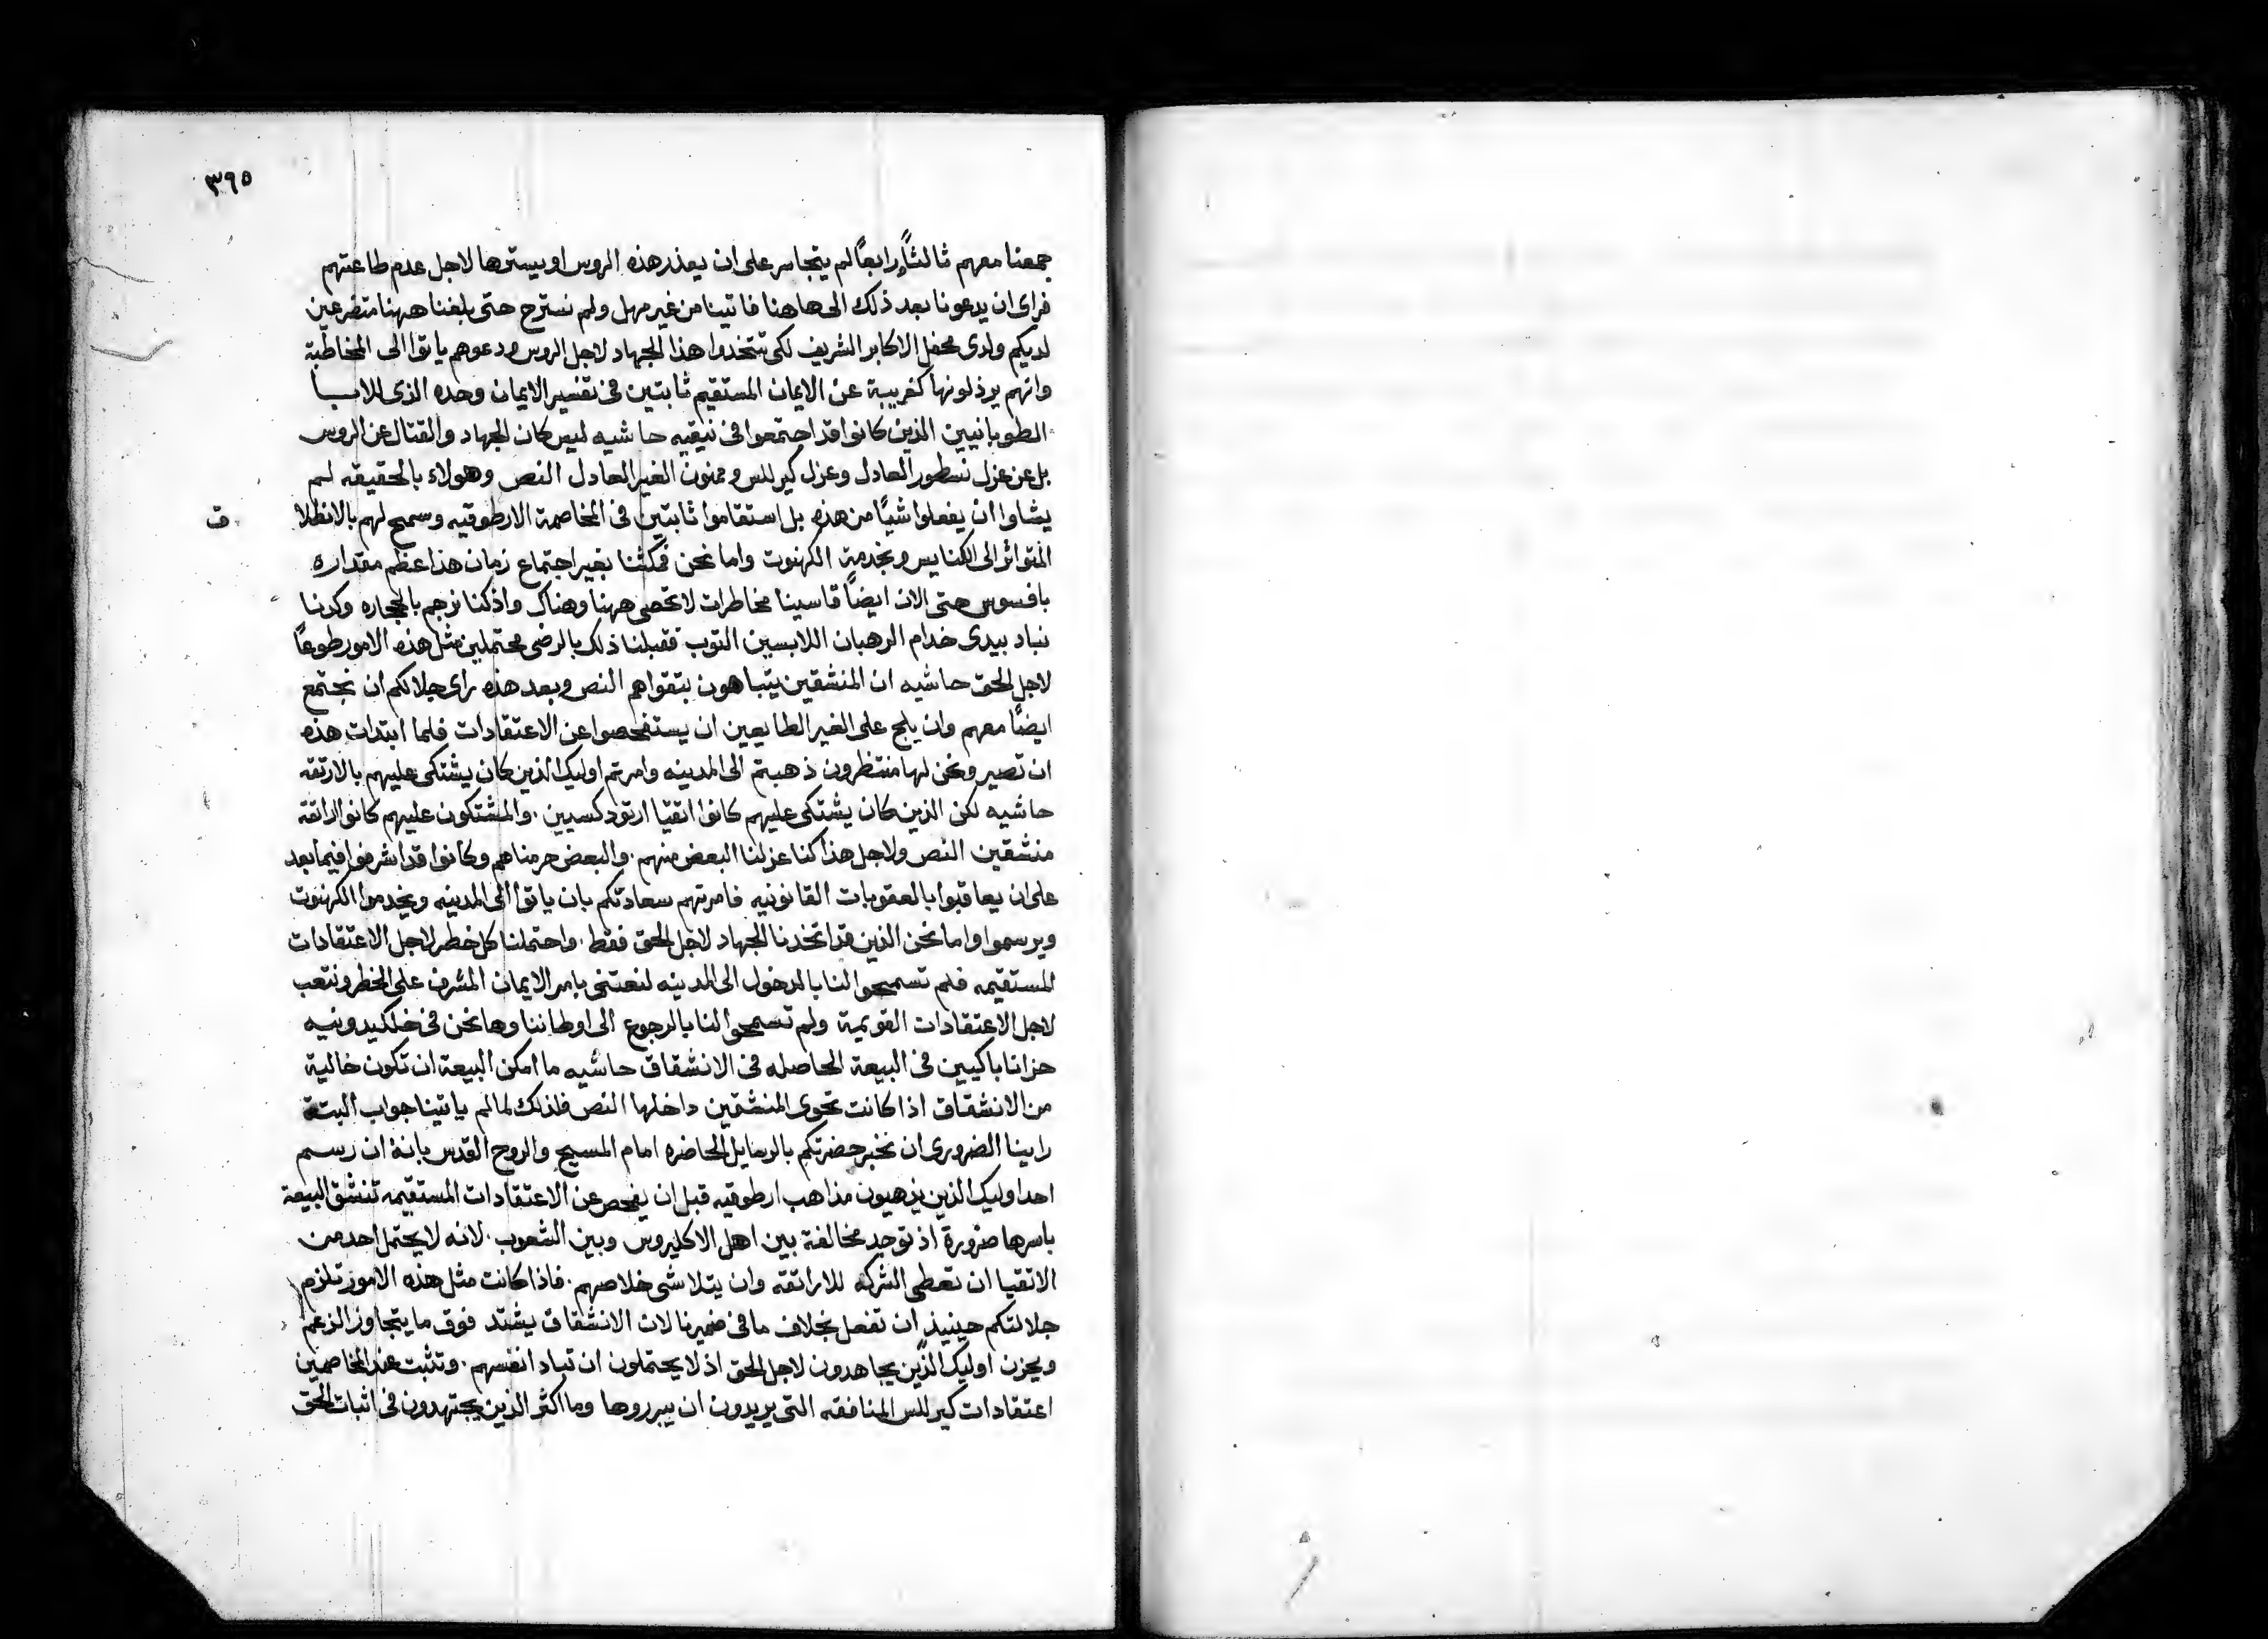 ٣٩٥
جمعنا معهم ثالثًا ورابعًا لم يتجاسر على ان يعذر هذه الروس او يسترها لاجل عدم طاعتهم
فراى ان يدعونا بعد ذلك الى هاهنا فاتينا من غير مهل ولم نسترح حتى بلغنا ههنا متضرعين
لديكم ولدى محفل الاكابر الشريف لكى تتخدوا هذا الجهاد لاجل الروس ودعوهم ياتوا الى المخاطبة
وانهم يرذلونها كغريبة عن الايمان المستقيم ثابتين فى تفسير الايمان وحده الذى للابا
الطوبانيين الذين كانوا قد اجتمعوا فى نيقيه حاشيه ليس كان الجهاد والقتال عن الروس
بل عن عزل نسطور العادل وعزل كيرللس وممنون الغير العادل النص وهولاء بالحقيقه لم
يشاوا ان يفعلوا شيًا من هذه بل استقاموا ثابتين فى المخاصمة الارطوقيه وسمح لهم بالانطلا ق
المتواتر الى الكنايس وبخدمة الكهنوت واما نحن فمكثنا بغير اجتماع زمان هذا عظم مقداره
بافسوس حتى الان ايضاً قاسينا مخاطرات لا تحصى ههنا وهناك واذ كنا نرجم بالحجاره وكدنا
نباد بيدى خدام الرهبان اللابسين التوب فقبلنا ذلك بالرضى محتملين مثل هذه الامور طوعاً
لاجل الحق حاشيه ان المنشقين يتباهون بتقواهم النص وبعد هذه راى جلالكم ان نجتمع
ايضًا معهم وان يلج على الغير الطايعين ان يستفحصوا عن الاعتقادات فلما ابتدات هذه
ان تصير ونحن لها منتظرون ذهبتم الى المدينه وامرتم اوليك الذين كان يشتكى عليهم بالارتقه
حاشيه لكن الذين كان يشتكى عليهم كانوا اتقيا ارتودكسيين. والمشتكون عليهم كانوا اراتقه
منشقين النص ولاجل هذا كنا عزلنا البعض منهم. والبعض حرمناهم وكانوا قد اشرفوا فيما بعد
على ان يعاقبوا بالعقوبات القانونيه فامرتهم سعادتكم بان ياتوا الى المدينه ويخدموا الكهنوت
ويرسموا واما نحن الذين قد اتخدنا الجهاد لاجل الحق فقط. واحتملنا كل خطر لاجل الاعتقادات
المستقيمه فلم تسمحوا لنا بالدخول الى المدينه لنعتنى بامر الايمان المشرف على الخطر ونتعب
لاجل الاعتقادات القويمة ولم تسمحوا لنا بالرجوع الى اوطاننا وها نحن فى خلكيدونيه
حزانا باكيين فى البيعة الحاصله فى الانشقاق حاشيه ما امكن البيعة ان تكون خالية
من الانشقاق اذا كانت تحوى المنشقين داخلها النص فلذلك لما لم ياتينا جواب البتة
راينا الضرورى ان نخبر حضرتكم بالرسايل الحاضره امام المسيح والروح القدس بانه ان رسم
احد اوليك الذين يذهبون مذاهب ارطوقيه قبل ان يفحص عن الاعتقادات المستقيمه تنشق البيعة
باسرها ضرورة اذ توجد مخالفة بين اهل الاكليروس وبين الشعوب. لانه لا يحتمل احد من
الاتقيا ان تعطى الشركه للاراتقه وان يتلاشى خلاصهم. فاذا كانت مثل هذه الامور تلزم
جلالتكم حينيذ ان تفعل بخلاف ما فى ضميرنا لان الانشقاق يشتد فوق ما يتجاوز الزعم
ويحزن اوليك الذين يجاهدون لاجل الحق اذ لا يحتملون ان تباد انفسهم. وتثبت عند المخاصمين
اعتقادات كيرللس المنافقه التى يريدون ان يبرروها وما اكثر الذين يجتهدون فى اثبات الحق